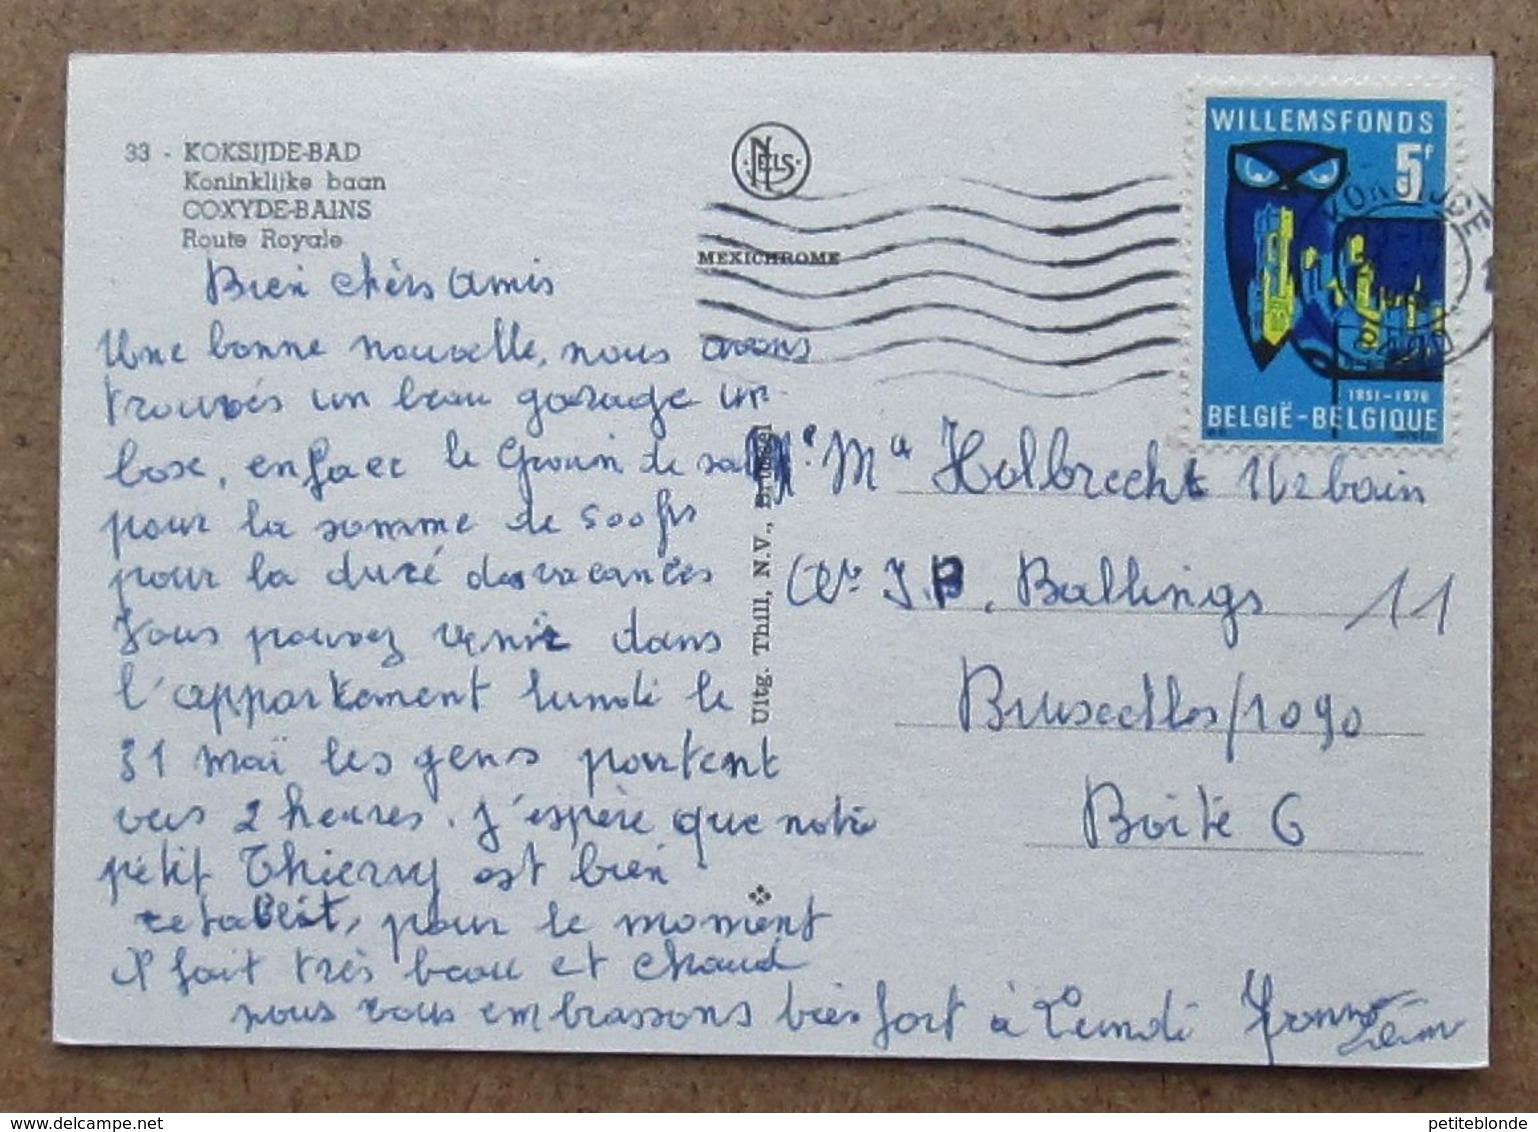 33 - KOKSIJDE-BAD
Koninklijke baan
COXYDE-BAINS
Route Royale
NELS
MEXICHROME
WILLEMSFONDS
5F
1851-1976
BELGIË-BELGIQUE
Uitg. Thill, N.V., Brussel
Bien chèrs amis
Une bonne nouvelle, nous avons
trouvés un beau garage un
box, en face le Grain de sable
pour la somme de 500 frs
pour la duré des vacances
Vous pouvez venir dans
l'appartement lundi le
31 maï les gens partent
vers 2 heures. J'espère que notre
petit Thierry est bien
retablit, pour le moment
il fait très beau et chaud
nous vous embrassons bien fort à Lundi Yvonne
Mr Ma Holbrecht Urbain
Av. J.B. Ballings 11
Bruxelles/1090
Boîte 6
petiteblonde